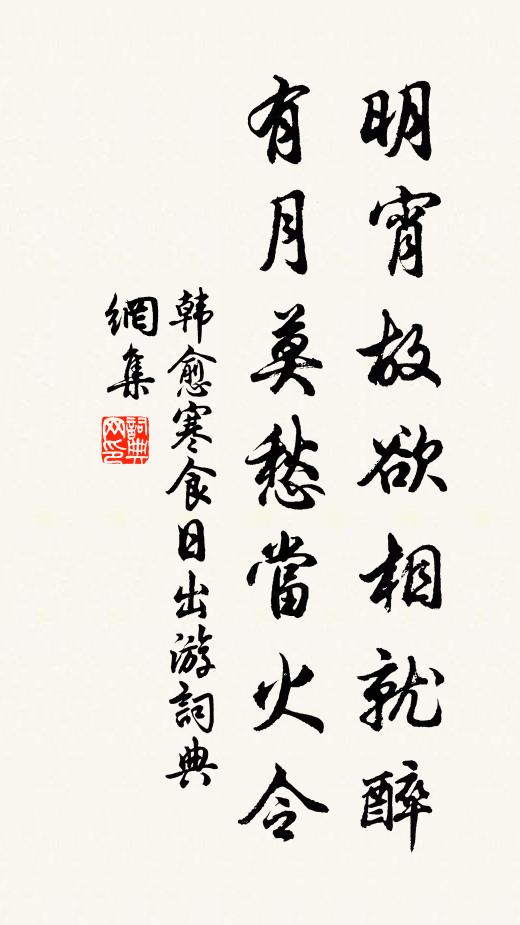 明宵故欲相就醉
有月莫愁當火令
韩愈寒食日出游詞典
網集
詞典网印